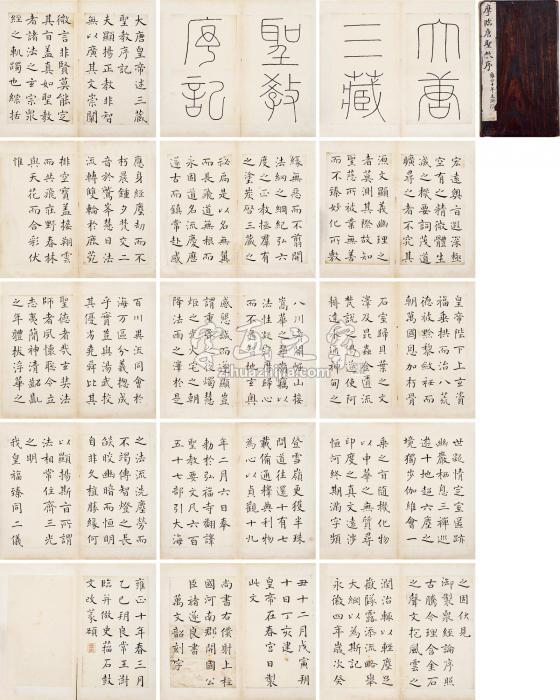 摩臨唐聖教序
大唐
三藏
聖教
序記
大唐皇帝述三藏
聖教序記
夫顯揚正教非智
無以廣其文崇闡
微言非賢莫能定
其旨蓋真如聖教
者諸法之玄宗衆
經之軌躅也綜括
宏遠奧旨遐深極
空有之精微體生
滅之機要詞茂道
曠尋之者不究其
源文顯義幽理之
者莫測其際故知
聖慈所被業無善
而不臻妙化所敷
緣無惡而不翦開
法網之綱紀弘六
度之正教拯羣有
之塗炭啟三藏之
秘扃是以名無翼
而長飛道無根而
永固道名流慶歷
遂古而鎮常赴感
應身經塵劫而不
朽晨鍾夕梵交二
音於鷲峯慧日法
流轉雙輪於鹿菀
排空寶蓋接翔雲
而共飛莊野春林
與天花而合彩伏
惟
皇帝陛下上玄資
福垂拱而治八荒
德被黔黎斂衽而
朝萬國恩加朽骨
石室歸貝葉之文
澤及昆蟲金匱流
梵說之偈遂使阿
耨達水通神甸之
八川耆闍崛山接
嵩華之翠嶺竊以
法性凝寂靡歸心
而不通智地玄奧
感懇誠而遂顯豈
謂重昏之夜燭慧
炬之光火宅之朝
降法雨之澤於是
百川異流同會於
海萬區分義揔成
其實豈與湯武校
其優劣堯舜比其
聖德者哉玄奘法
師者夙懷聰令立
志夷簡神清齠齔
之年體拔浮華之
世凝情定室匿跡
幽巖栖息三禪巡
遊十地超六塵之
境獨步伽維會一
乘之旨隨機化物
以中華之無質尋
印度之真文遠涉
恒河終期滿字頻
登雪嶺更獲半珠
問道往還十有七
載備通釋典利物
為心以貞觀十九
年二月六日奉
勅於弘福寺翻譯
聖教要文凡六百
五十七部引大海
之法流洗塵勞而
不竭傳智燈之長
燄皎幽暗而恒明
自非久植勝緣何
以顯揚斯旨所謂
法相常住齊三光
之明
我皇福臻同二儀
之固伏見
御製衆經論序照
古騰今理含金石
之聲文抱風雲之
潤治輒以輕塵足
嶽墜露添流略舉
大綱以為斯記
永徽四年歲次癸
丑十二月戊寅朔
十日丁亥建
皇帝在春宮日製
此文
尚書右僕射上柱
國河南郡開國公
臣褚遂良書
萬文韶刻字
雍正十年春三月
乙巳朔良常王澍
臨并倣史籀石鼓
文改篆額
书画之家